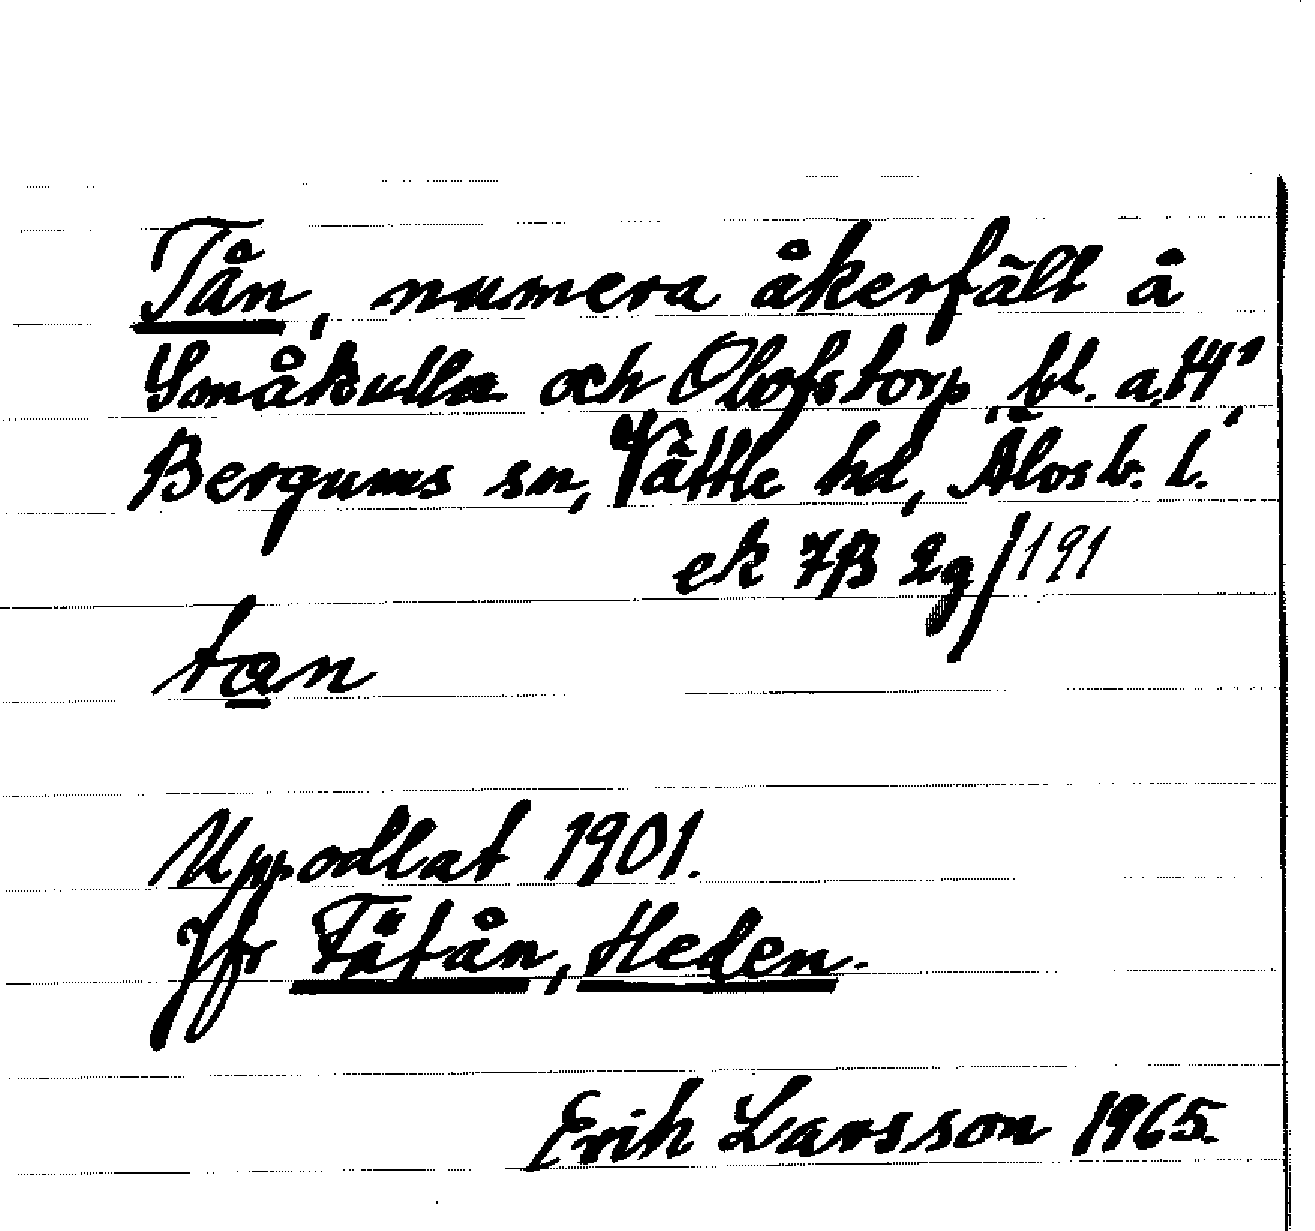 Tån, numera åkerfält å
Småkulla och Olofstorp bl. a. 14¹,
Bergums sn, Vättle hd, Älvsb. l.
ek 7B 2g/191
tɑn
Uppodlat 1901.
Jfr Fäfån, Heden.
Erik Larsson 1965.